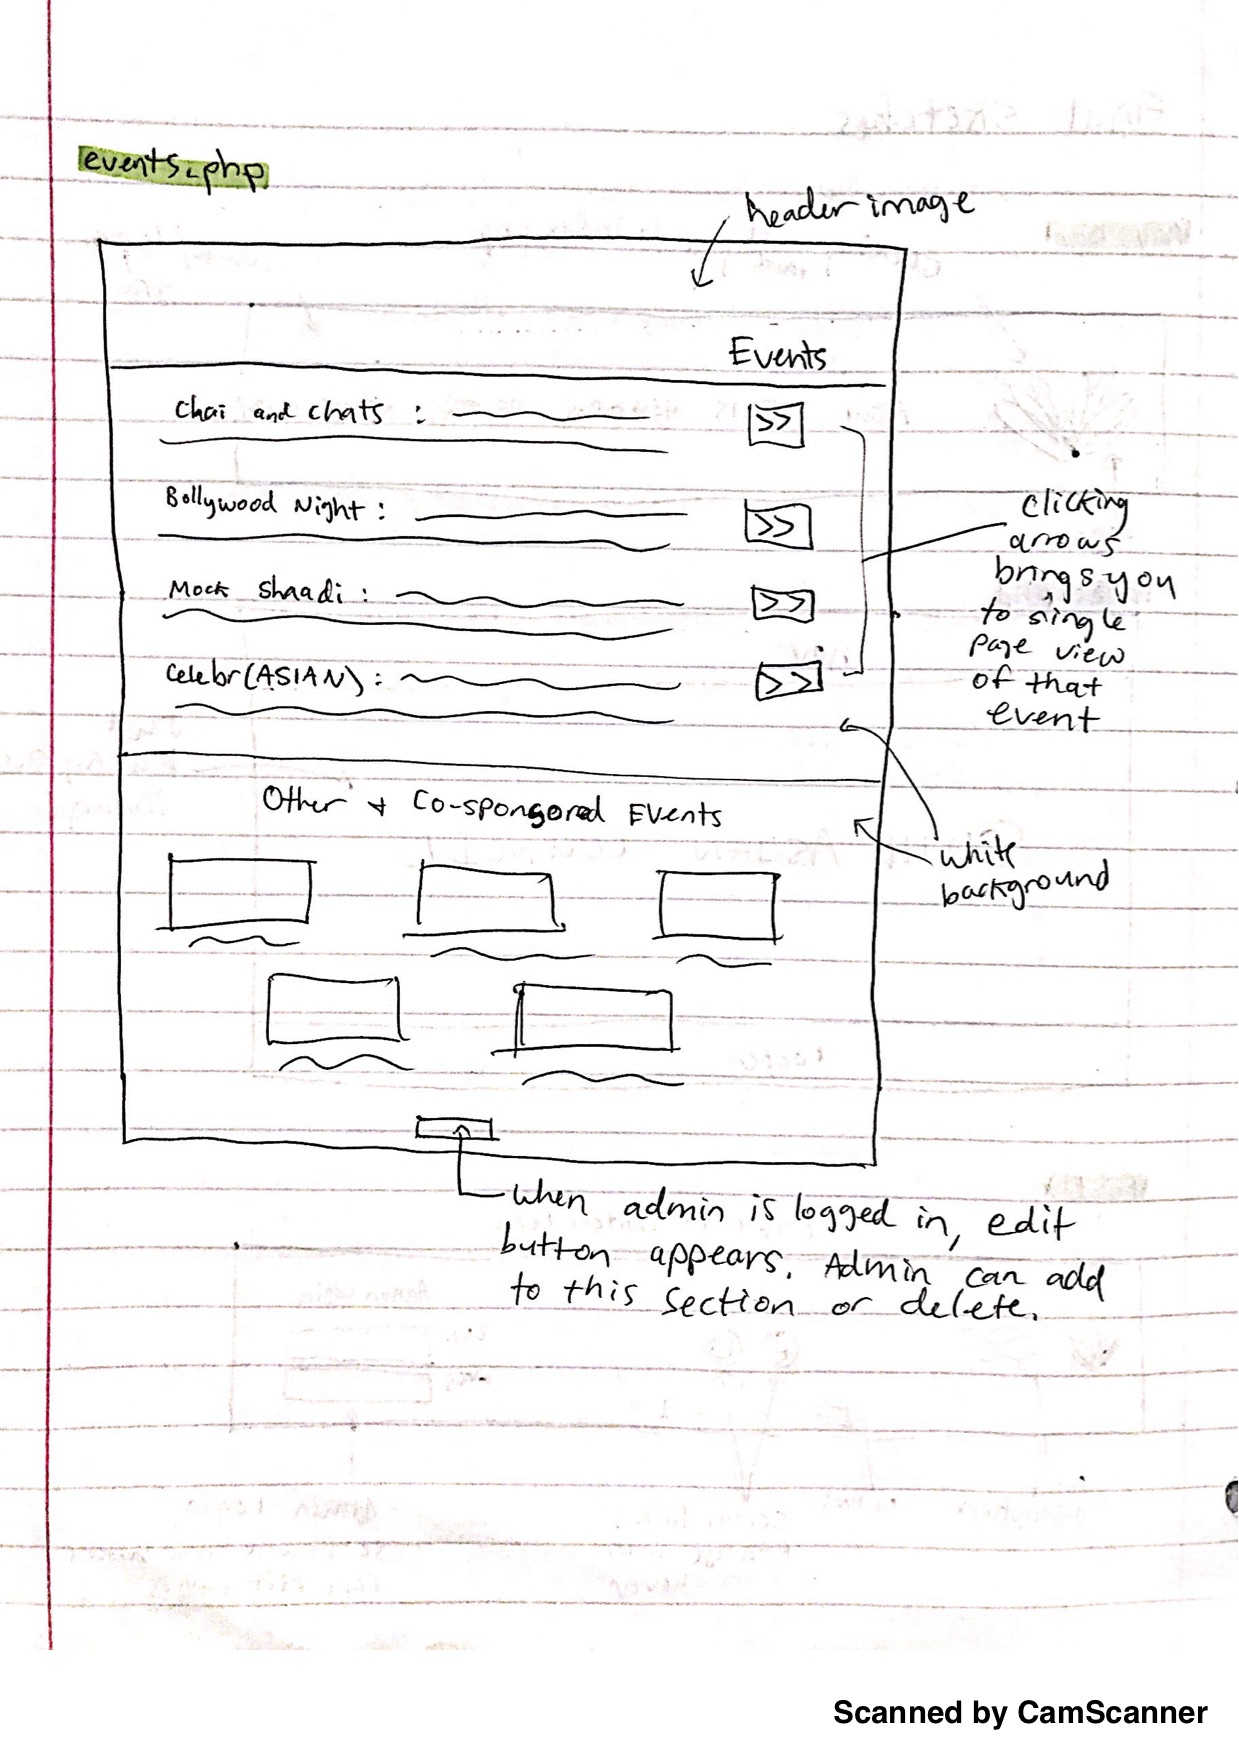 events.php
header image
Events
Chai and chats :
>>
Bollywood Night :
>>
Mock Shaadi :
>>
Celebr(ASIAN) :
>>
clicking
arrows
brings you
to single
page view
of that
event
Other + Co-sponsored Events
white
background
when admin is logged in, edit
button appears. Admin can add
to this section or delete.
Scanned by CamScanner